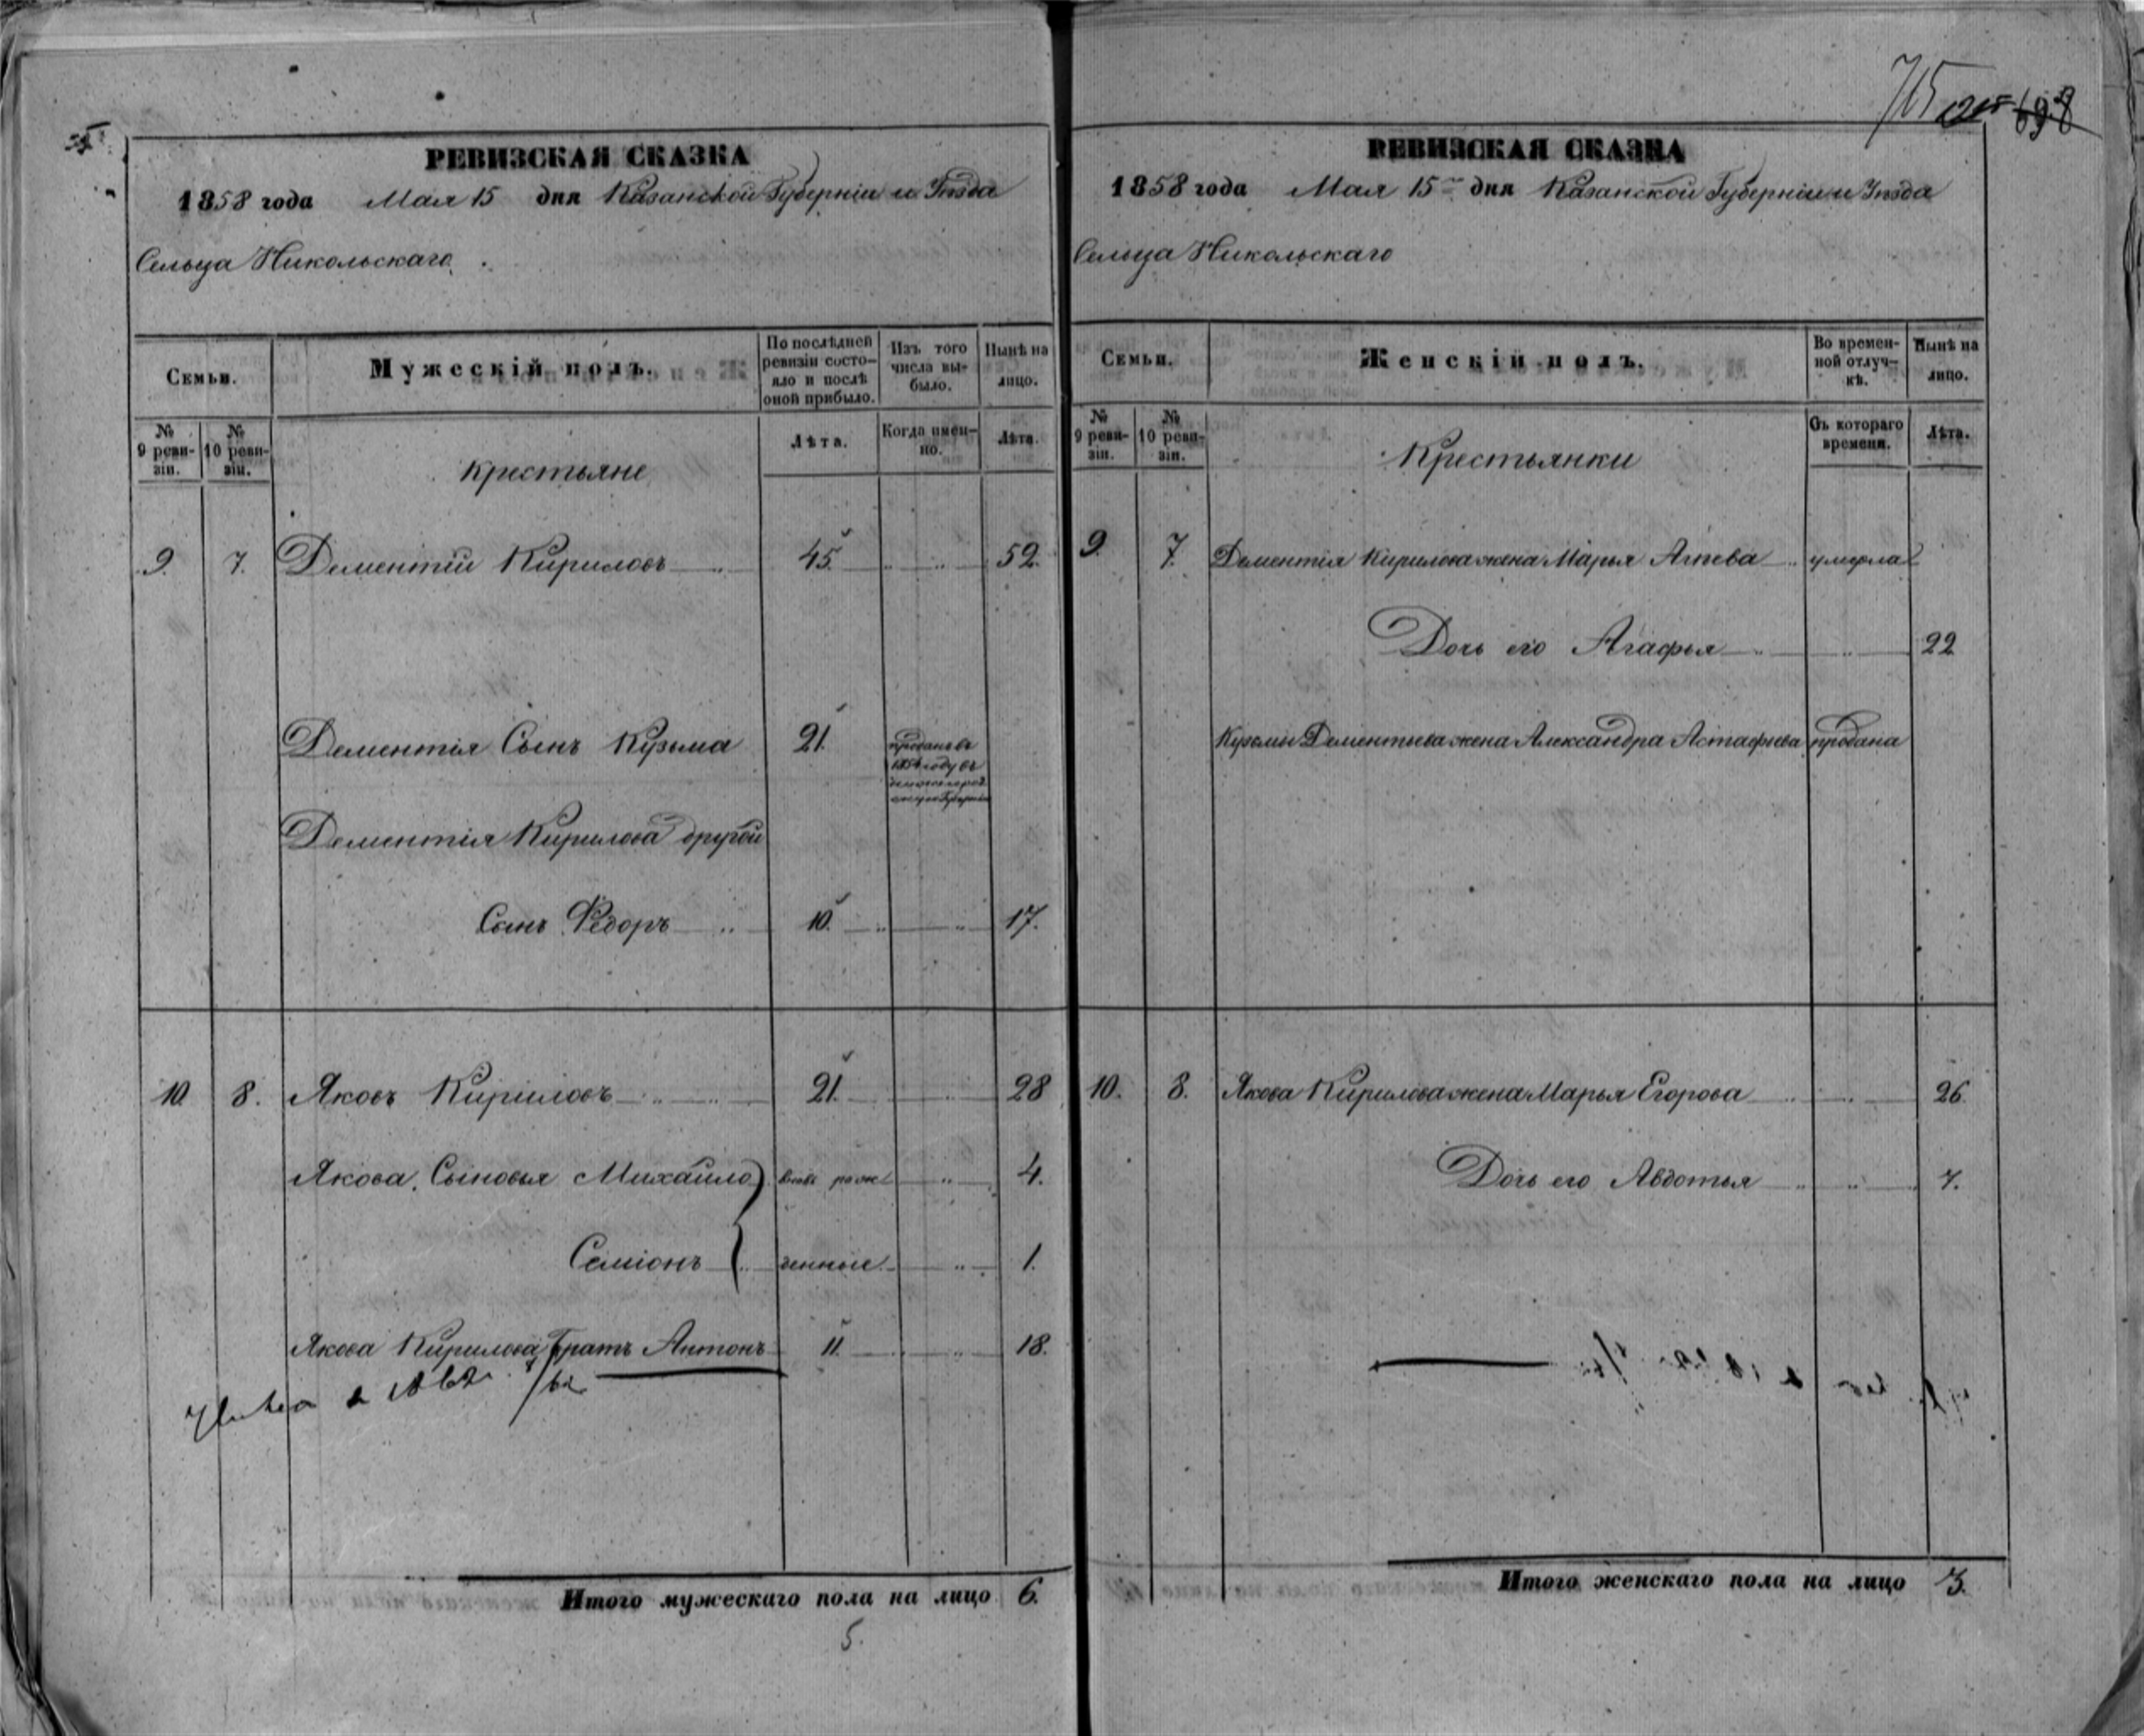 715 698
РЕВИЗСКАЯ СКАЗКА
1858 года Мая 15 дня Казанской Губерніи и Уѣзда
Сельца Никольскаго
Семьи.
Мужескій полъ.
По послѣдней ревизіи состо-
яло и послѣ
оной прибыло.
Изъ того
числа вы-
было.
Нынѣ на
лицо.
№
9 реви-
зіи.
№
10 реви-
зіи.
Крестьяне
Лѣта.
Когда имен-
но.
Лѣта.
9. 7. Дементій Кириловъ 45. 52.
Дементія Сынъ Кузьма 21. проданъ въ
году въ
Дементія Кирилова другой
Сынъ Ѳедоръ 10. 17.
10. 8. Яковъ Кириловъ 21. 28
Якова Сыновья Михайло вновь рож 4.
Семіонъ денные 1.
Якова Кирилова братъ Антонъ 11. 18.
Итого мужескаго пола на лицо 6.
5.
РЕВИЗСКАЯ СКАЗКА
1858 года Мая 15 дня Казанской Губерніи и Уѣзда
Сельца Никольскаго
Семьи.
Женскій полъ.
Во времен-
ной отлуч-
кѣ.
Нынѣ на
лицо.
№
9 реви-
зіи.
№
10 реви-
зіи.
Крестьянки
Съ котораго
времени.
Лѣта.
9. 7. Дементія Кирилова жена Марья Агѣева умерла
Дочь его Агафья 22
Кузьмы Дементьева жена Александра Астафьева продана
10. 8. Якова Кирилова жена Марья Егорова 26.
Дочь его Авдотья 7.
Итого женскаго пола на лицо 3.